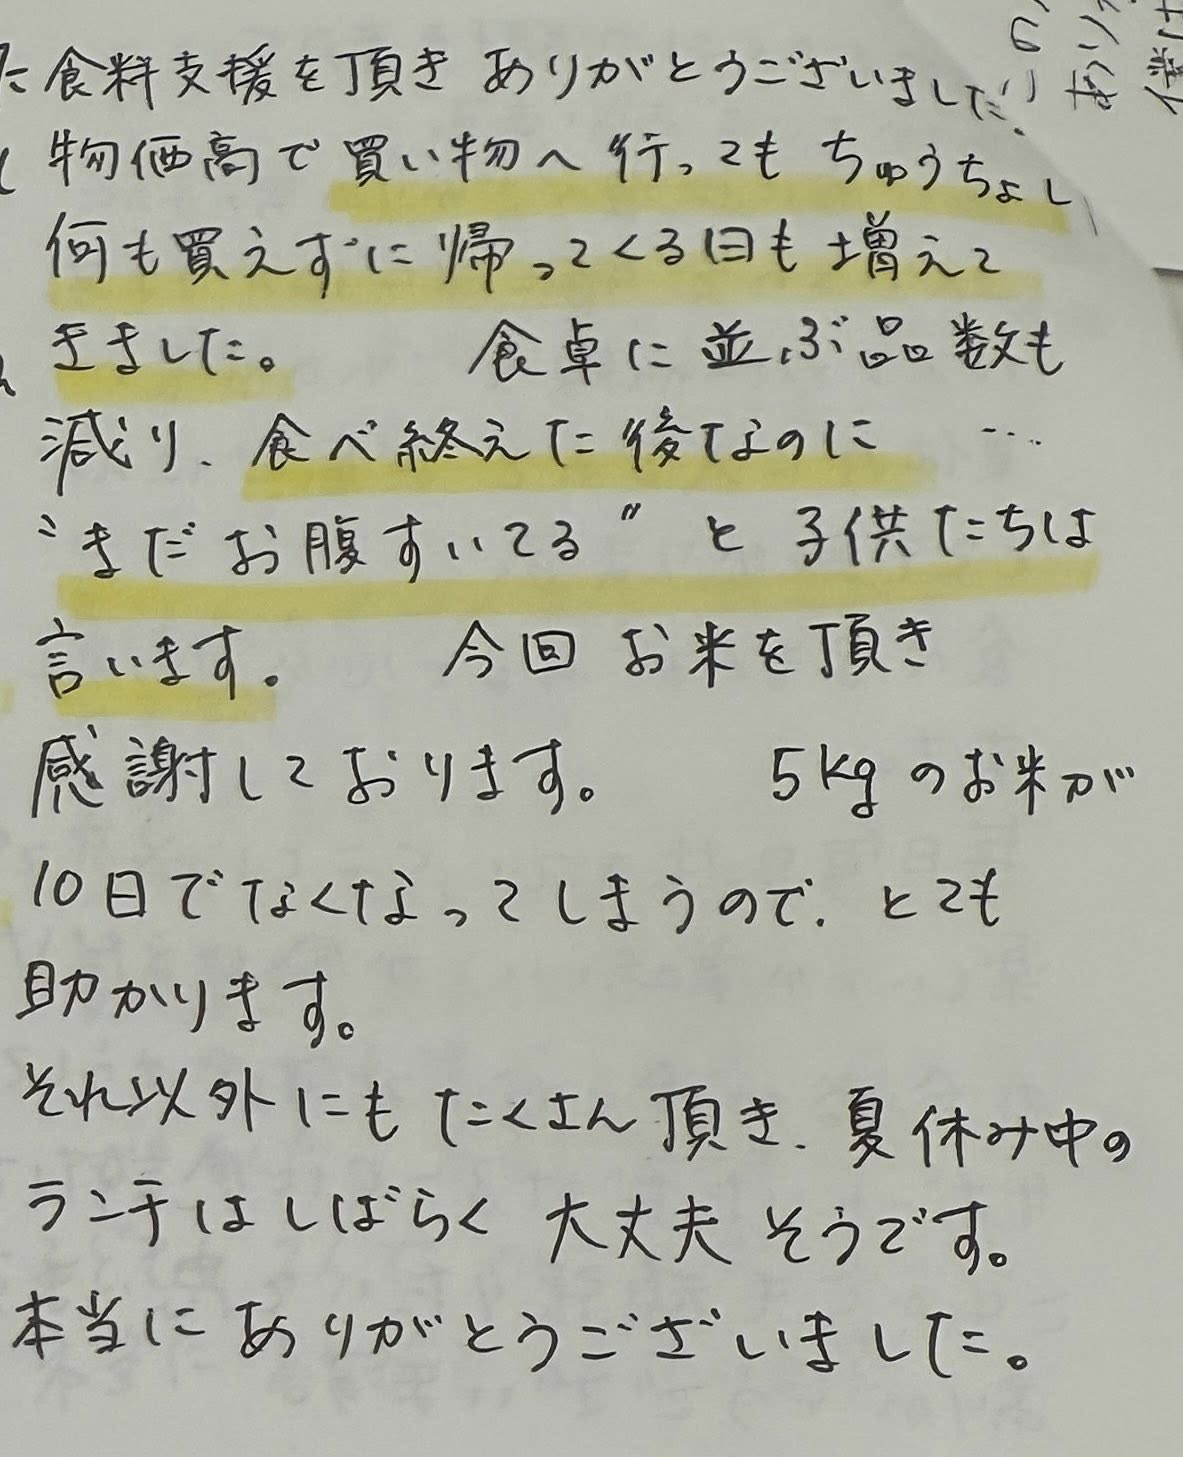 た食料支援を頂きありがとうございました。
物価高で買い物へ行ってもちゅうちょし
何も買えずに帰ってくる日も増えて
きました。 食卓に並ぶ品数も
減り、食べ終えた後なのに …
〝まだお腹すいてる〟と子供たちは
言います。 今回お米を頂き
感謝しております。 5kgのお米が
10日でなくなってしまうので、とても
助かります。
それ以外にもたくさん頂き、夏休み中の
ランチはしばらく大丈夫そうです。
本当にありがとうございました。